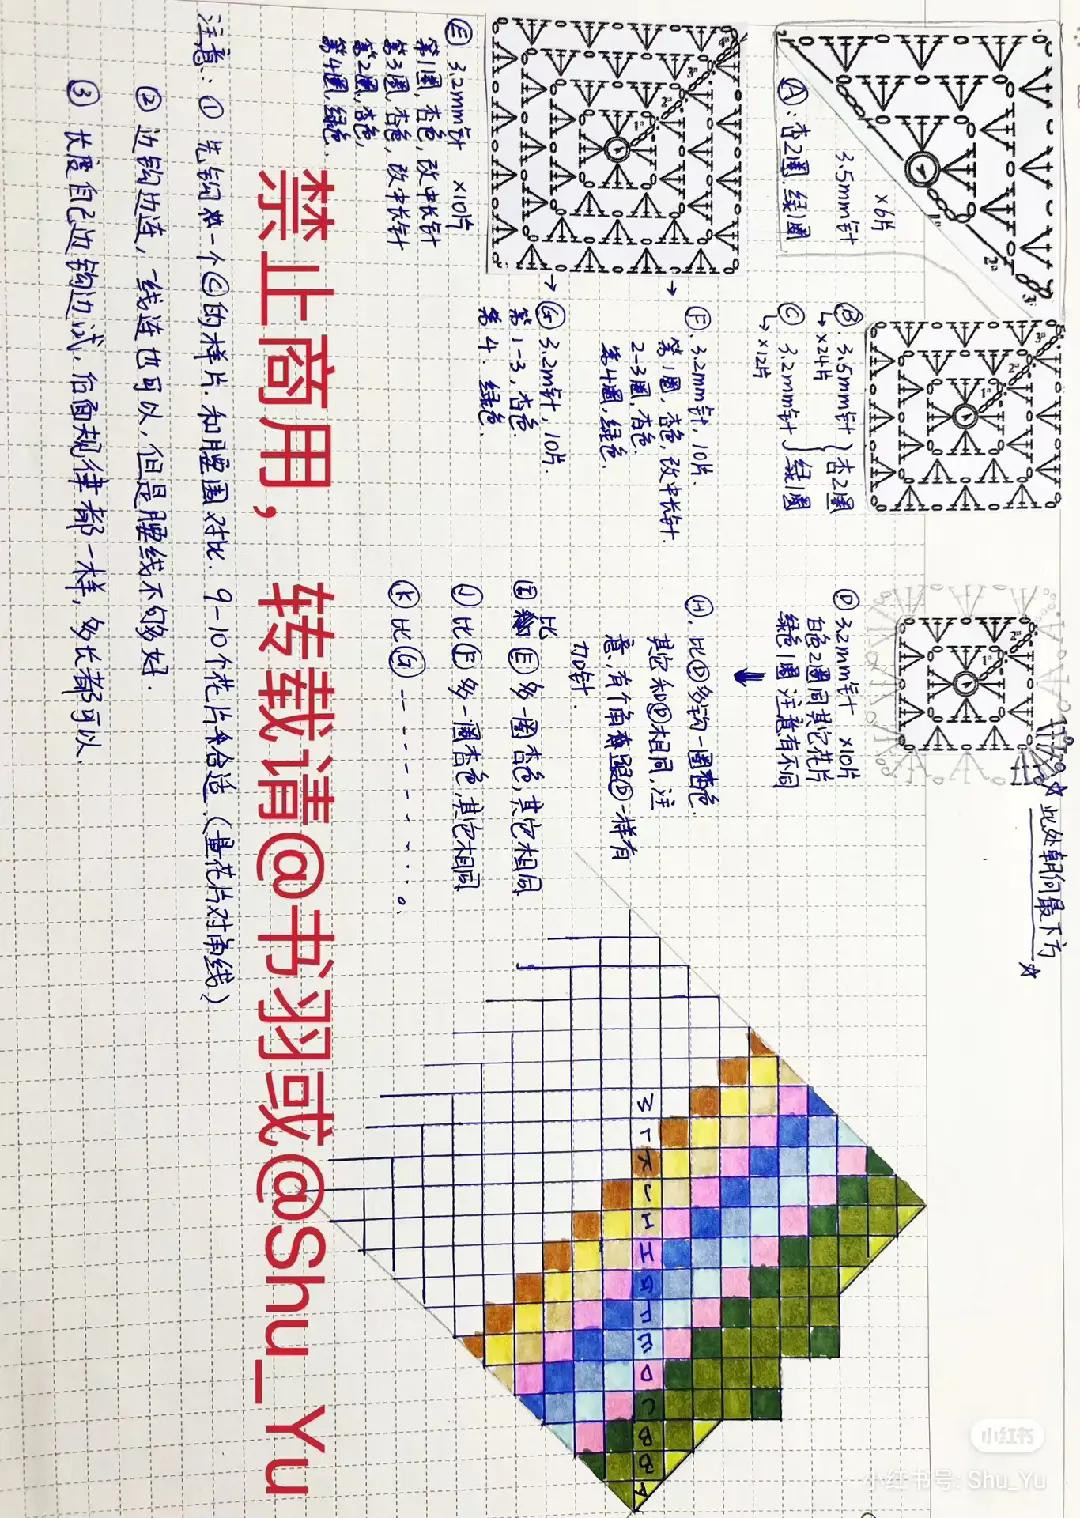 Ⓐ:杏2圈.绿1圈
3.5mm针
×6片
Ⓑ 3.5mm针 } 杏2圈
↳×24片
Ⓒ 3.2mm针 } 绿1圈
↳×12片
Ⓓ 3.2mm针 ×10片
白色2圈同其它花片
绿色1圈 注意有不同
☆此处朝向最下方☆
Ⓔ 3.2mm针 ×10片
第1圈,杏色,改中长针
第3圈,杏色,改中长针
第2圈,杏色,
第4圈,绿色.
→ Ⓕ.3.2mm针,10片.
第1圈,杏色,改中长针.
2-3圈.杏色.
第4圈,绿色.
→ Ⓖ 3.2m针,10片
第1-3,杏色.
第4.绿色.
Ⓗ.比Ⓓ多钩一圈杏色.
其它和Ⓓ相同,注
意,有个角跟Ⓓ一样有
加针.
比Ⓔ多一圈杏色,其它相同
Ⓙ比Ⓕ多一圈杏色,其它相同
Ⓚ比Ⓖ--------。
M L K J I H G F E D C B B A
注意:① 先钩一个Ⓒ的样片.和腰围对比.9-10个花片合适.(量花片对角线)
② 边钩边连,一线连也可以,但是腰线不够好.
③ 长度自己边钩边试,后面规律都一样,多长都可以.
禁止商用,转载请@书羽或@Shu_Yu
小红书
小红书号: Shu_Yu